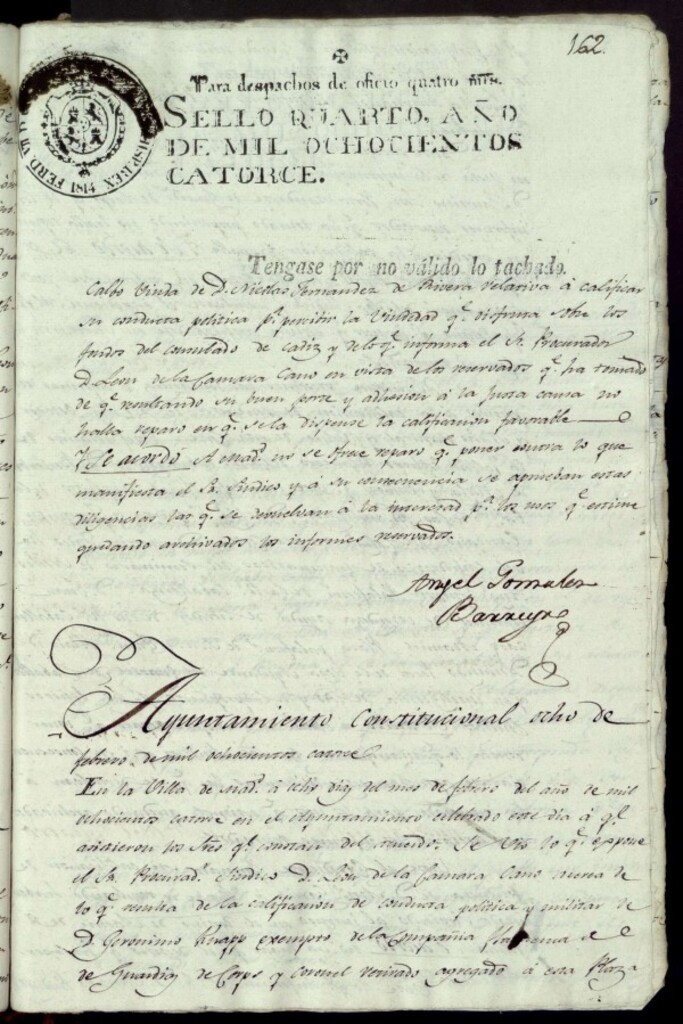 162.
✠
Para despachos de oficio quatro mrs.
SELLO QUARTO, AÑO
DE MIL OCHOCIENTOS
CATORCE.
FERD. VII HISP. REX 1814
Tengase por no válido lo tachado.
Calbo Viuda de D. Nicolas Fernandez de Rivera relativa á calificar
su conducta politica pa. percibir la Viudedad qe. disfruta sobre los
fondos del consulado de Cadiz y de lo qe. informa el Sr. Procurador
D. Leon de la Camara Cano en vista de los reservados qe. ha tomado
de qe. resultando su buen porte y adhesion á la Justa causa no
halla reparo en qe. se la dispense la calificacion favorable
Y Se acordó A Madd. no se ofrece reparo qe. poner contra lo que
manifiesta el Sr. Sindico y á su consecuencia se aprueban estas
diligencias las qe. se devuelvan á la interesad pa. los usos qe. estime
quedando archivados los informes reservados.
Angel Gonzalez
Barreyro
Ayuntamiento Constitucional ocho de
febrero de mil ochocientos catorce
En la Villa de Madd. á ocho dias del mes de febrero del año de mil
ochocientos catorce en el Ayuntamiento celebrado este dia á qe.
asistieron los Sres qe. constan del acuerdo. Se Vió lo qe. expone
el Sr. Procuradr. Sindico D. Leon de la Camara Cano acerca de
lo qe. resulta de la calificacion de conducta politica y militar de
D. Geronimo Knapp exempto de la Compañia
de Guardias de Corps y Coronel retirado agregado á esta Plaza